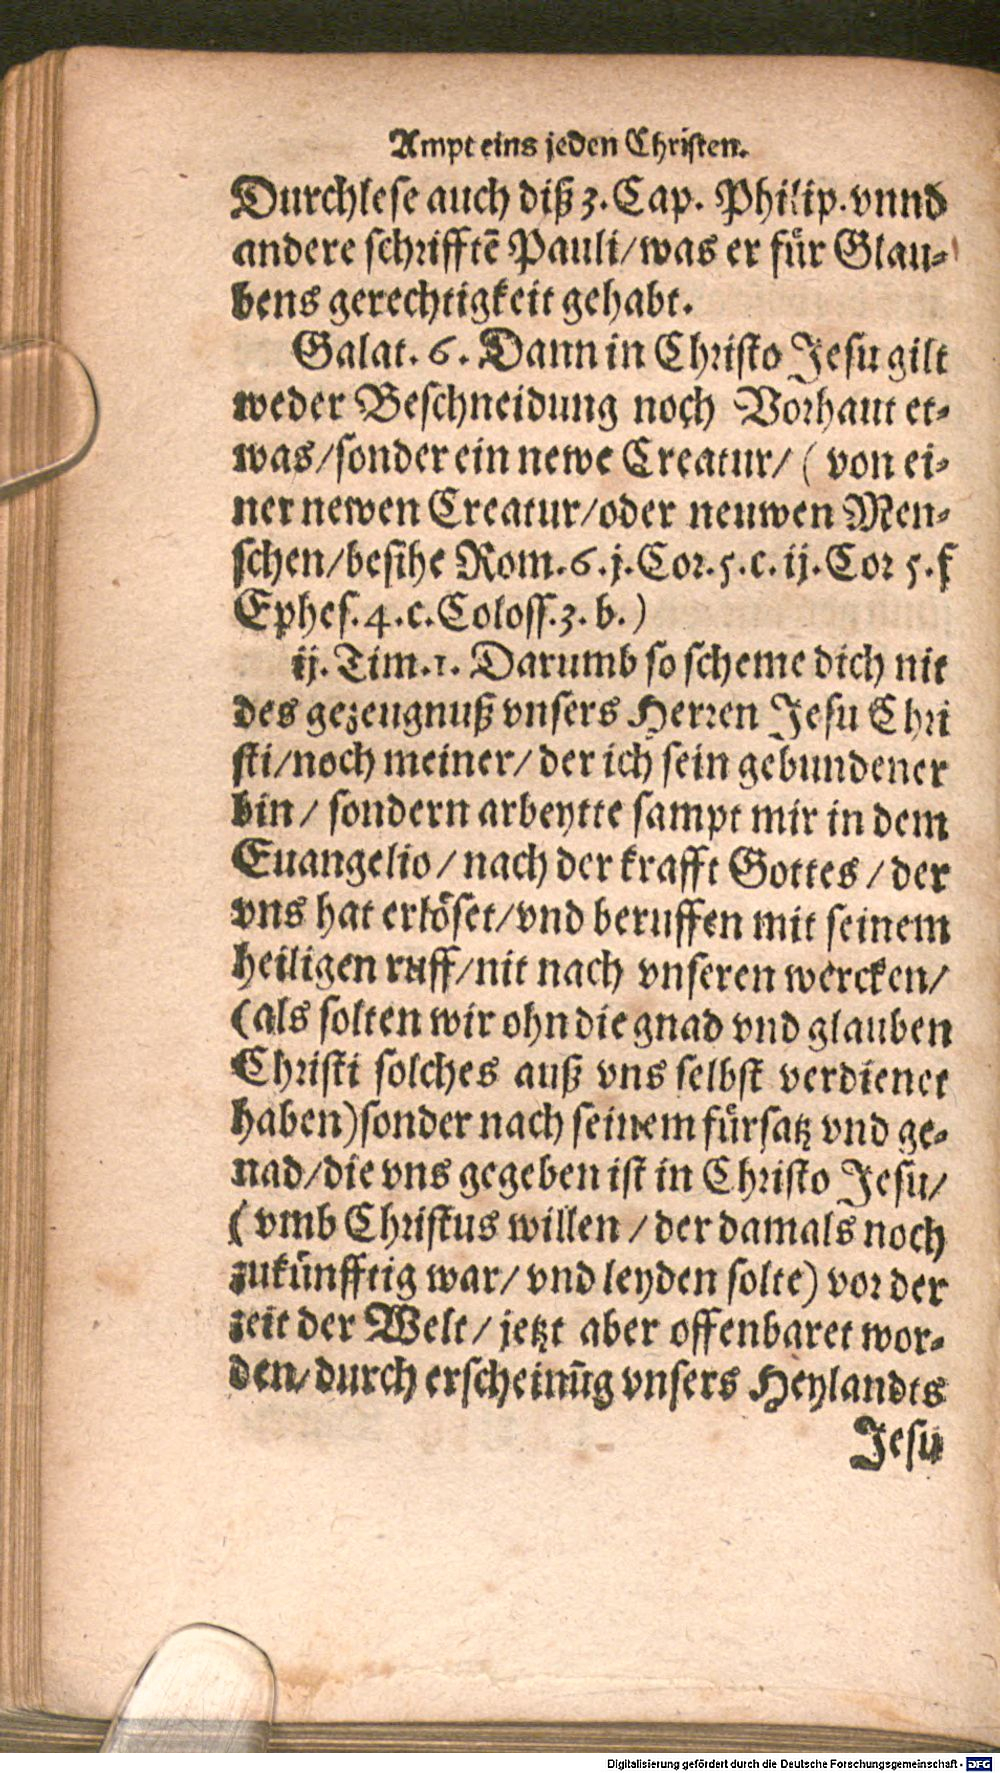 Ampt eins jeden Christen.
Durchlese auch diß 3. Cap. Philip. vnnd
andere schrifftē Pauli/was er für Glau-
bens gerechtigkeit gehabt.
Galat. 6. Dann in Christo Jesu gilt
weder Beschneidung noch Vorhaut et-
was/sonder ein newe Creatur/ (von ei-
ner newen Creatur/oder neuwen Men-
schen/besihe Rom. 6. j. Cor. 5. c. ij. Cor 5. f
Ephes. 4. c. Coloss. 3. b.)
ij. Tim. 1. Darumb so scheme dich nit
des gezeugnuß vnsers Herren Jesu Chri
sti/noch meiner/ der ich sein gebundener
bin/ sondern arbeytte sampt mir in dem
Euangelio/ nach der krafft Gottes/ der
vns hat erlöset/vnd beruffen mit seinem
heiligen ruff/nit nach vnseren wercken/
(als solten wir ohn die gnad vnd glauben
Christi solches auß vns selbst verdienet
haben)sonder nach seinem fürsatz vnd ge-
nad/die vns gegeben ist in Christo Jesu/
(vmb Christus willen/ der damals noch
zukünfftig war/ vnd leyden solte) vor der
zeit der Welt/ jetzt aber offenbaret wor-
den/durch erscheinūg vnsers Heylandts
Jesu
Digitalisierung gefördert durch die Deutsche Forschungsgemeinschaft - DFG